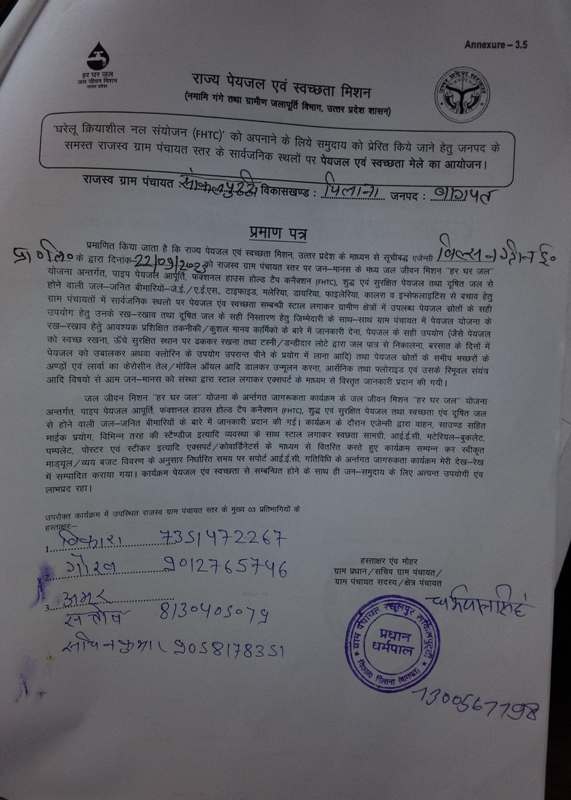 Annexure – 3.5
हर घर जल
जल जीवन मिशन
राज्य पेयजल एवं स्वच्छता मिशन
(नमामि गंगे तथा ग्रामीण जलापूर्ति विभाग, उत्तर प्रदेश शासन)
'घरेलू क्रियाशील नल संयोजन (FHTC)' को अपनाने के लिये समुदाय को प्रेरित किये जाने हेतु जनपद के
समस्त राजस्व ग्राम पंचायत स्तर के सार्वजनिक स्थलों पर पेयजल एवं स्वच्छता मेले का आयोजन।
राजस्व ग्राम पंचायत विकासखण्ड : पिलाना जनपद : बागपत
प्रमाण पत्र
प्रमाणित किया जाता है कि राज्य पेयजल एवं स्वच्छता मिशन, उत्तर प्रदेश के माध्यम से सूचीबद्ध एजेन्सी
प्रा० लि० के द्वारा दिनांक 22/09/2023 को राजस्व ग्राम पंचायत स्तर पर जन–मानस के मध्य जल जीवन मिशन "हर घर जल"
योजना अन्तर्गत, पाइप पेयजल आपूर्ति, फक्शनल हाउस होल्ड टैप कनैक्शन (FHTC), शुद्ध एवं सुरक्षित पेयजल तथा दूषित जल से
होने वाली जल–जनित बीमारियों–जे.ई./ए.ई.एस. टाइफाइड, मलेरिया, डायरिया, फाइलेरिया, कालरा व इन्सेफलाइटिस से बचाव हेतु
ग्राम पंचायतों में सार्वजनिक स्थलो पर पेयजल एंव स्वच्छता सम्बन्धी स्टाल लगाकर ग्रामीण क्षेत्रों में उपलब्ध पेयजल स्रोतों के सही
उपयोग हेतु उनके रख–रखाव तथा दूषित जल के सही निस्तारण हेतु जिम्मेदारी के साथ–साथ ग्राम पंचायत में पेयजल योजना के
रख–रखाव हेतु आवश्यक प्रशिक्षित तकनीकी/कुशल मानव कार्मिको के बारे में जानकारी देना, पेयजल के सही उपयोग (जैसे पेयजल
को स्वच्छ रखना, ऊँचे सुरक्षित स्थान पर ढककर रखना तथा टस्नी/डन्डीदार लोटे द्वारा जल पात्र से निकालना, बरसात के दिनों में
पेयजल को उबालकर अथवा क्लोरिन के उपयोग उपरान्त पीने के प्रयोग में लाना आदि) तथा पेयजल स्रोतों के समीप मच्छरों के
अण्डों एवं लार्वा का केरोसीन तेल/मोबिल ऑयल आदि डालकर उन्मूलन करना, आर्सेनिक तथा फ्लोराइड एवं उसके रिमूवल संयंत्र
आदि विषयों से आम जन–मानस को संस्था द्वारा स्टाल लगाकर एक्सपर्ट के माध्यम से विस्तृत जानकारी प्रदान की गयी।
जल जीवन मिशन "हर घर जल" योजना के अन्तर्गत जागरूकता कार्यक्रम के जल जीवन मिशन "हर घर जल" योजना
अन्तर्गत, पाइप पेयजल आपूर्ति, फक्शनल हाउस होल्ड टैप कनैक्शन (FHTC), शुद्ध एवं सुरक्षित पेयजल तथा स्वच्छता एंव दूषित जल
से होने वाली जल–जनित बीमारियों के बारे में जानकारी प्रदान की गई। कार्यक्रम के दौरान एजेन्सी द्वारा वाहन, साउण्ड सहित
माईक प्रयोग, विभिन्न तरह की स्टैण्डीज इत्यादि व्यवस्था के साथ स्टाल लगाकर स्वच्छता सामग्री, आई.ई.सी. मटेरियल–बुकलेट,
पम्पलेट, पोस्टर एवं स्टीकर इत्यादि एक्सपर्ट/कोवार्डिनेटर्स के माध्यम से वितरित करते हुए कार्यक्रम सम्पन्न कर स्वीकृत
माड्यूल/व्यय बजट विवरण के अनुसार निर्धारित समय पर सपोर्ट आई.ई.सी. गतिविधि के अर्न्तगत जागरूकता कार्यक्रम मेरी देख–रेख
में सम्पादित कराया गया। कार्यक्रम पेयजल एवं स्वच्छता से सम्बन्धित होने के साथ ही जन–समुदाय के लिए अत्यन्त उपयोगी एंव
लाभप्रद रहा।
उपरोक्त कार्यक्रम में उपस्थित राजस्व ग्राम पंचायत स्तर के मुख्य 03 प्रतिभागियों के
हस्ताक्षर–
1. विकास 7351472267
2. गौरव 9012765746
3. अमर
सतीश 8130405079
सचिन कुमार 9058178351
हस्ताक्षर एंव मोहर
ग्राम प्रधान/सचिव ग्राम पंचायत/
ग्राम पंचायत सदस्य/क्षेत्र पंचायत
धर्मपाल सिंह
प्रधान
धर्मपाल